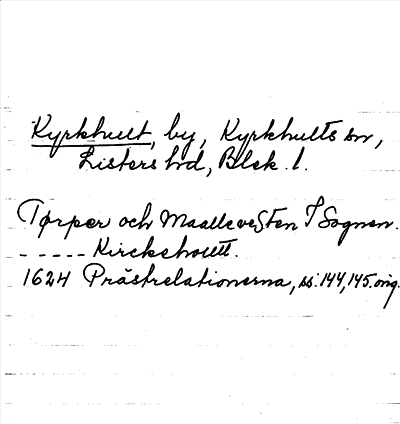 Kyrkhult, by, Kyrkhults sn,
Listers hd, Blek. l.
Tørper och Maalleresten I Sognen.
- - - - - Kirckehoultt.
1624 Prästrelationerna, ss. 144, 145. orig.